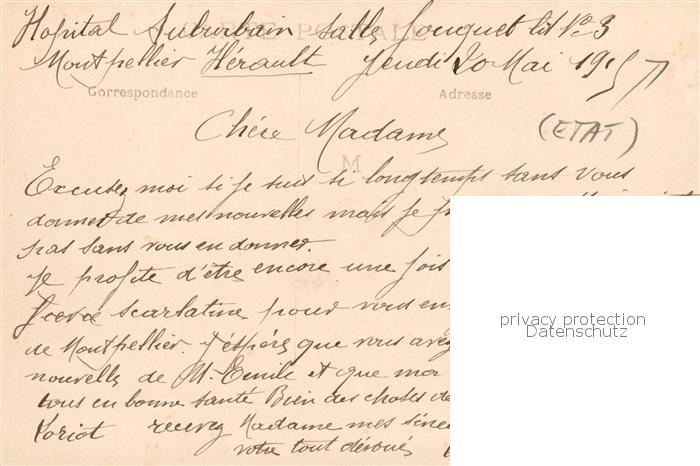 CARTE POSTALE
Hopital Suburbain salle Fouquet lit No 3
Montpellier Hérault Jeudi 20 Mai 1915
Correspondance Adresse
Chére Madame
(ETAT)
M
Excusez moi si je suis si longtemps sans vous
donner de mes nouvelles mais je
pas sans vous en donner.
je profite d'être encore une fois
fievre scarlatine pour vous en
de Montpellier. J'éspére que vous avez
nouvelles de M. Emile et que ma
tous en bonne santé Bien des choses de
Loriot recevez Madame mes
votre tout dévoué
privacy protection
Datenschutz